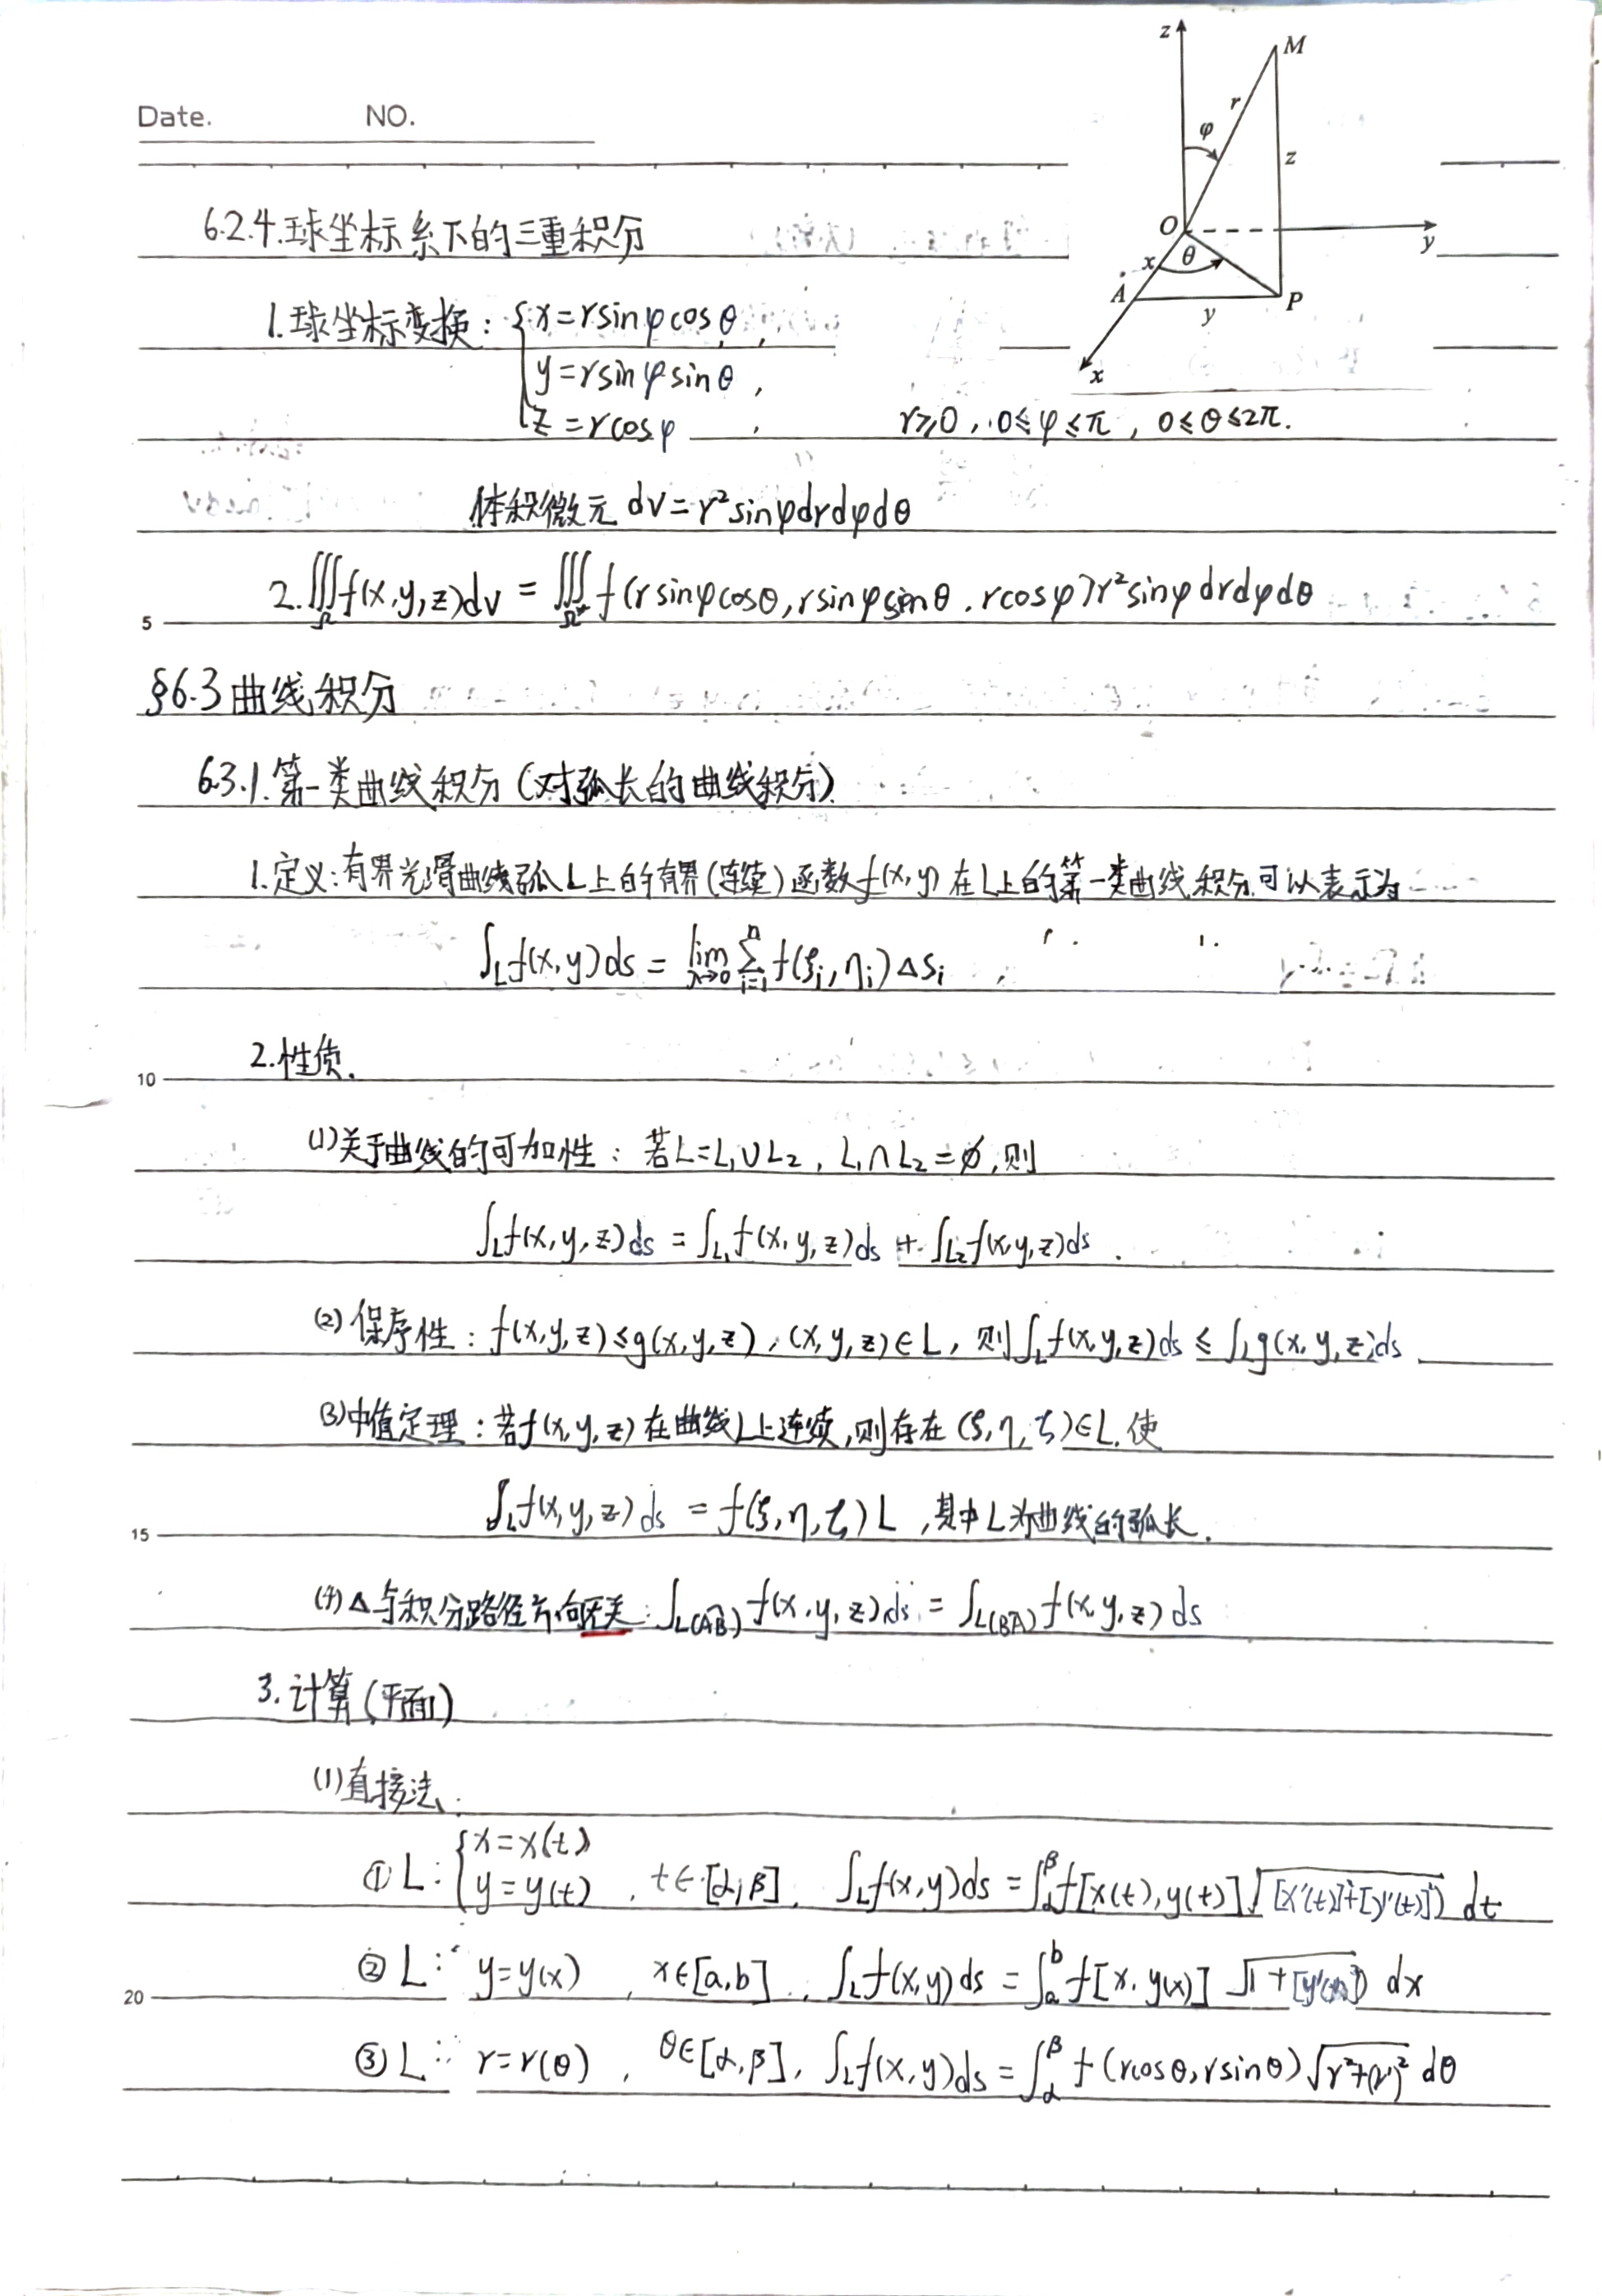 Date. NO.
z
M
r
φ
z
O
y
x
θ
A
y
P
x
6.2.4.球坐标系下的三重积分
1.球坐标变换：{x=rsinφcosθ,
y=rsinφsinθ,
z=rcosφ , r≥0, 0≤φ≤π, 0≤θ≤2π.
体积微元 dv=r²sinφdrdφdθ
2.∭_Ω f(x,y,z)dv = ∭_Ω* f(rsinφcosθ,rsinφsinθ,rcosφ)r²sinφdrdφdθ
5
§6.3 曲线积分
6.3.1.第一类曲线积分(对弧长的曲线积分)
1.定义:有界光滑曲线弧L上的有界(连续)函数f(x,y)在L上的第一类曲线积分可以表示为
∫_L f(x,y)ds = lim_{λ→0} Σ_{i=1}^{n} f(ξi,ηi)Δsi
2.性质.
10
(1)关于曲线的可加性：若L=L₁∪L₂, L₁∩L₂=∅,则
∫_L f(x,y,z)ds = ∫_L₁ f(x,y,z)ds + ∫_L₂ f(x,y,z)ds .
(2)保序性：f(x,y,z)≤g(x,y,z),(x,y,z)∈L, 则∫_L f(x,y,z)ds ≤ ∫_L g(x,y,z)ds
(3)中值定理：若f(x,y,z)在曲线L上连续,则存在(ξ,η,ζ)∈L,使
∫_L f(x,y,z)ds = f(ξ,η,ζ)L ,其中L为曲线的弧长.
15
(4)△与积分路径方向无关: ∫_L(AB) f(x,y,z)ds = ∫_L(BA) f(x,y,z)ds
3.计算(平面)
(1)直接法.
①L:{x=x(t)
y=y(t) , t∈[α,β], ∫_L f(x,y)ds = ∫_α^β f[x(t),y(t)]√([x'(t)]²+[y'(t)]²) dt
②L: y=y(x) , x∈[a,b] , ∫_L f(x,y)ds = ∫_a^b f[x,y(x)] √(1+[y'(x)]²) dx
20
③L: r=r(θ) , θ∈[α,β], ∫_L f(x,y)ds = ∫_α^β f(rcosθ,rsinθ)√(r²+(r')²) dθ